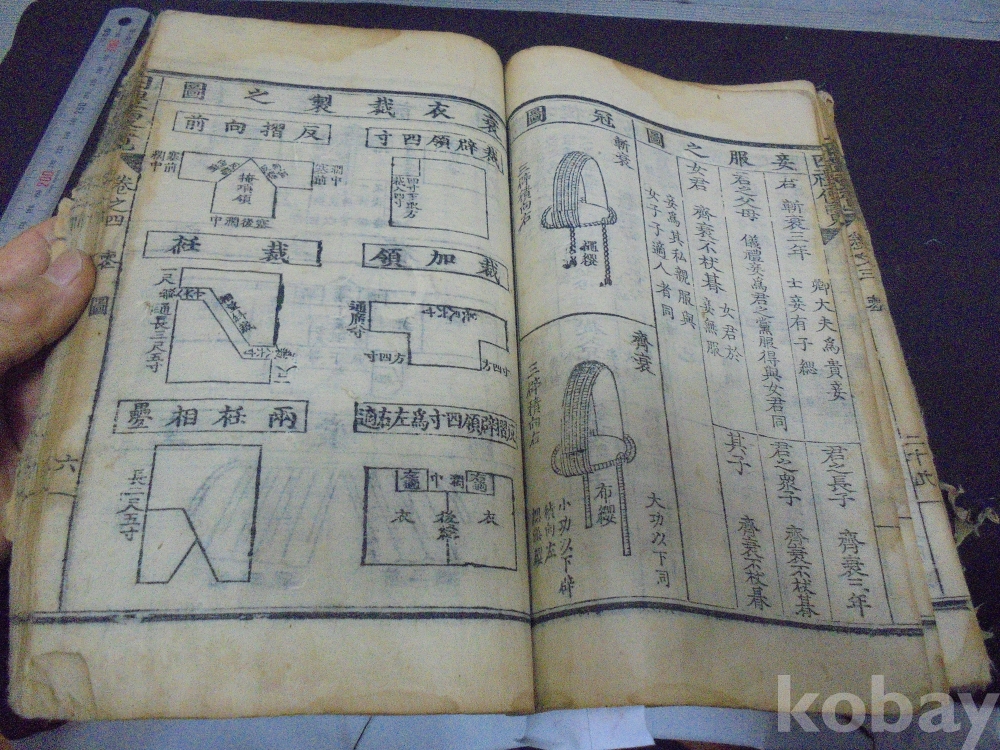 妾服之圖
君 斬衰三年
卿大夫爲貴妾
士妾有子緦
君之父母
儀禮妾爲君之黨服得與女君同
女君 齊衰不杖朞
女君於
妾無服
妾爲其私親服與
女子子適人者同
君之長子 齊衰三年
君之衆子 齊衰不杖朞
其子 齊衰不杖朞
冠圖
斬衰
三辟積向右
繩纓
齊衰
三辟積向右
布纓
大功以下同
小功以下辟
積向左
衰衣裁製之圖
裁辟領四寸
反摺向前
裁加領
方四寸
方四寸
裁衽
通長三尺五寸
反摺辟領四寸爲左右適
中濶
衣
後
衣
兩衽相疊
長二尺五寸
卷之四
圖
六
二十九
kobay